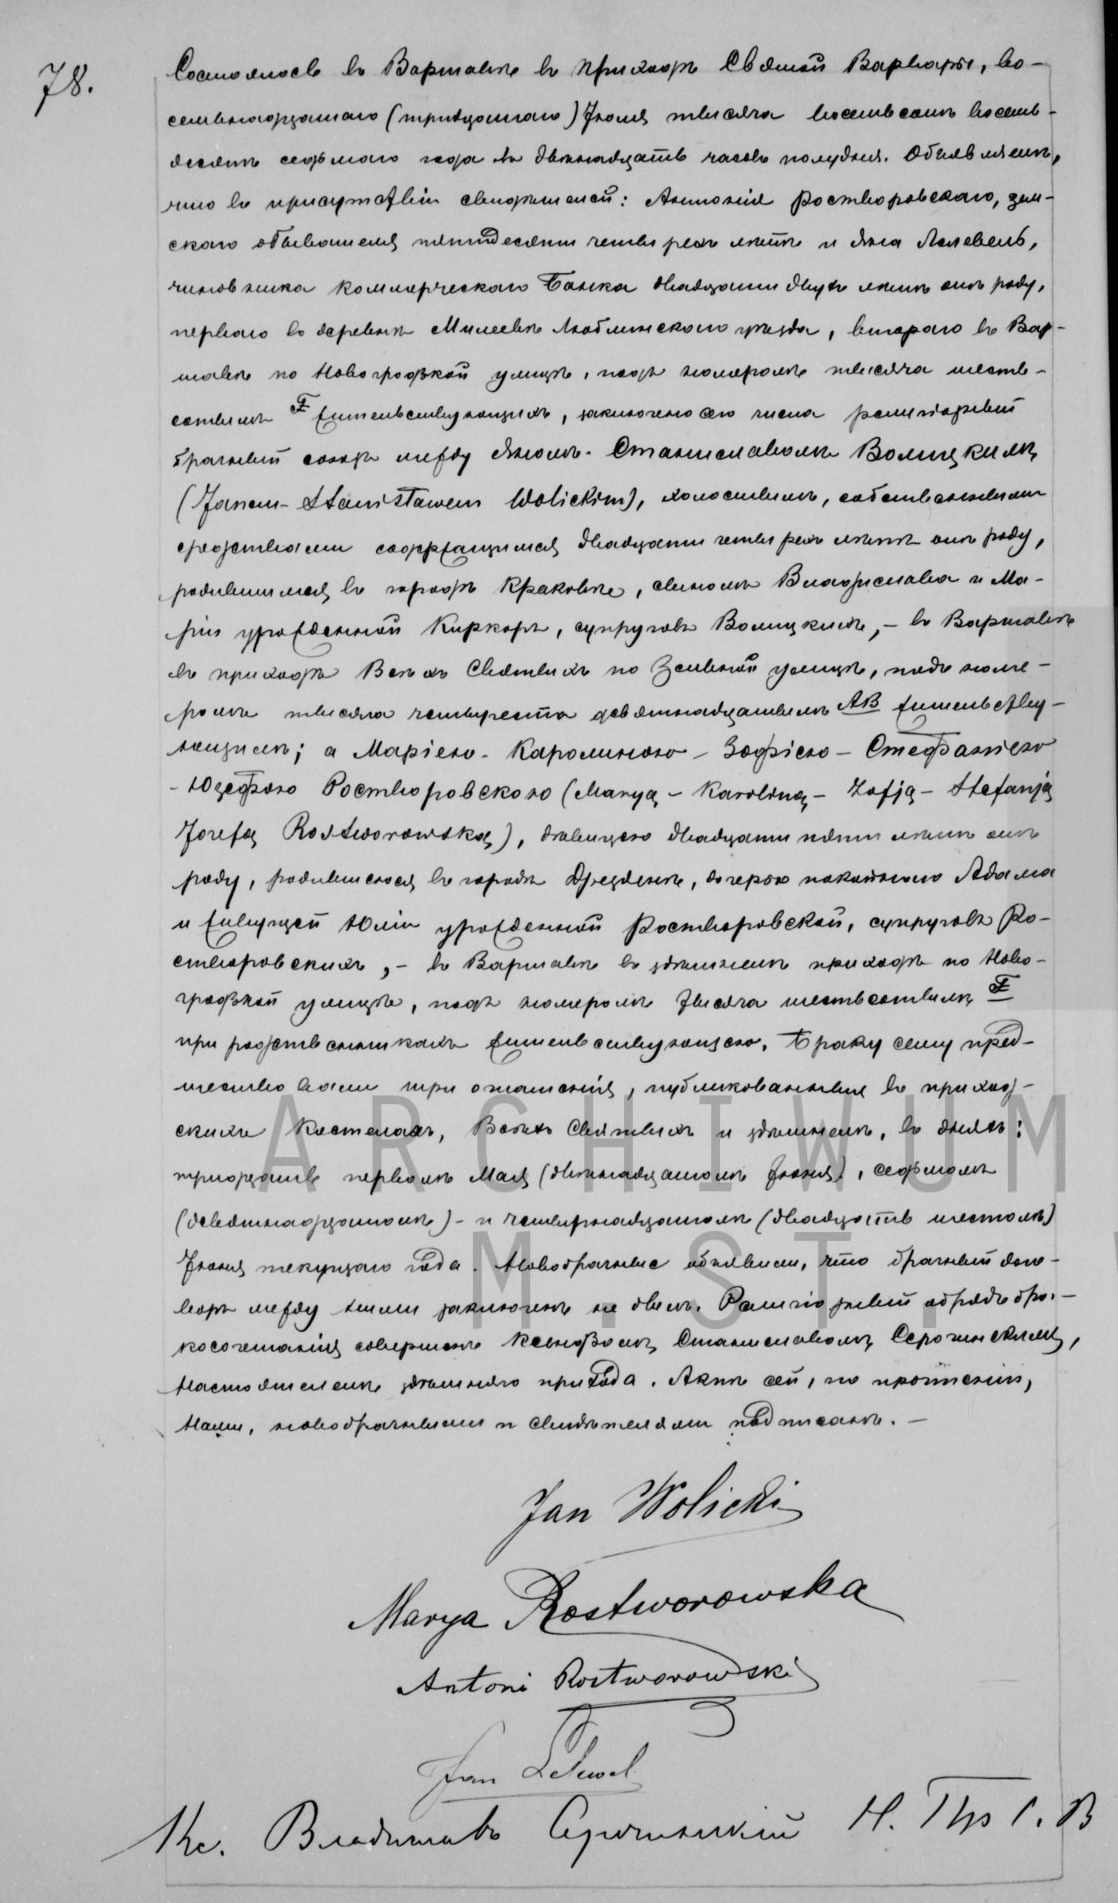 78.
Состоялось въ Варшавѣ въ приходѣ Святой Варвары, во-
семнадцатаго (тридцатаго) Іюня тысяча восемьсотъ восемь-
десятъ седьмаго года въ двѣнадцать часовъ полудня. Объявляемъ,
что въ присутствіи свидѣтелей: Антонія Ростворовскаго, зем-
скаго обывателя пятидесяти четырехъ лѣтъ и Яна Лелевель,
чиновника Коммерческаго Банка двадцати двухъ лѣтъ отъ роду,
перваго въ деревнѣ Милеевѣ Люблинскаго уѣзда, втораго въ Вар-
шавѣ по Новогродзкой улицѣ, подъ номеромъ тысяча шесть-
сотымъ F жительствующихъ, заключенъ сего числа религіозный
брачный союзъ между Яномъ-Станиславомъ Волицкимъ
(Janem-Stanisławem Wolickim), холостымъ, собственными
средствами содержащимся, двадцати четырехъ лѣтъ отъ роду,
родившимся въ городѣ Краковѣ, сыномъ Владислава и Ма-
ріи урожденной Киркоръ, супруговъ Волицкихъ, - въ Варшавѣ
въ приходѣ Всѣхъ Святыхъ по Зельной улицѣ, подъ номе-
ромъ тысяча четыреста девятнадцатымъ АВ жительству-
ющимъ; а Маріею-Каролиною-Зофіею-Стефаніею
-Юзефою Ростворовскою (Maryą-Karoliną-Zofją-Stefanją
Józefą Rostworowską), дѣвицею двадцати пяти лѣтъ отъ
роду, родившеюся въ городѣ Дрезденѣ, дочерью покойнаго Адама
и живущей Юліи урожденной Ростворовской, супруговъ Ро-
створовскихъ, - въ Варшавѣ въ здѣшнемъ приходѣ по Ново-
гродзкой улицѣ, подъ номеромъ тысяча шестьсотымъ F
при родственникахъ жительствующею. Браку сему пред-
шествовали три оглашенія, публикованныя въ приход-
скихъ костелахъ, Всѣхъ Святыхъ и здѣшнемъ, въ дняхъ:
тридцать первомъ Мая (двѣнадцатомъ Іюня), седьмомъ
(девятнадцатомъ) - и четырнадцатомъ (двадцать шестомъ)
Іюня текущаго года. Новобрачные объявили, что брачный дого-
воръ между ними заключенъ не былъ. Религіозный обрядъ бра-
косочетанія совершенъ Ксендзомъ Станиславомъ Серочинскимъ,
Настоятелемъ здѣшняго прихода. Актъ сей, по прочтеніи,
Нами, новобрачными и свидѣтелями подписанъ. -
Jan Wolicki
Marya Rostworowska
Antoni Rostworowski
Jan Lelewel
Кс. Н. Пр. С. В
ARCHIWUM
M. ST.